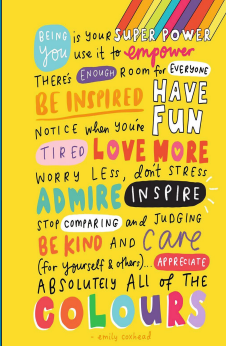 BEING is YOUR SUPER POWER
you use it to empower
THERE'S ENOUGH ROOM for EVERYONE
BE INSPIRED HAVE
NOTICE when you're FUN
TIRED LOVE MORE
WORRY LESS, don't STRESS
ADMIRE INSPIRE
STOP COMPARING and JUDGING
BE KIND AND care
(for yourself & others)... APPRECIATE
ABSOLUTELY ALL OF THE
COLOURS
- emily coxhead